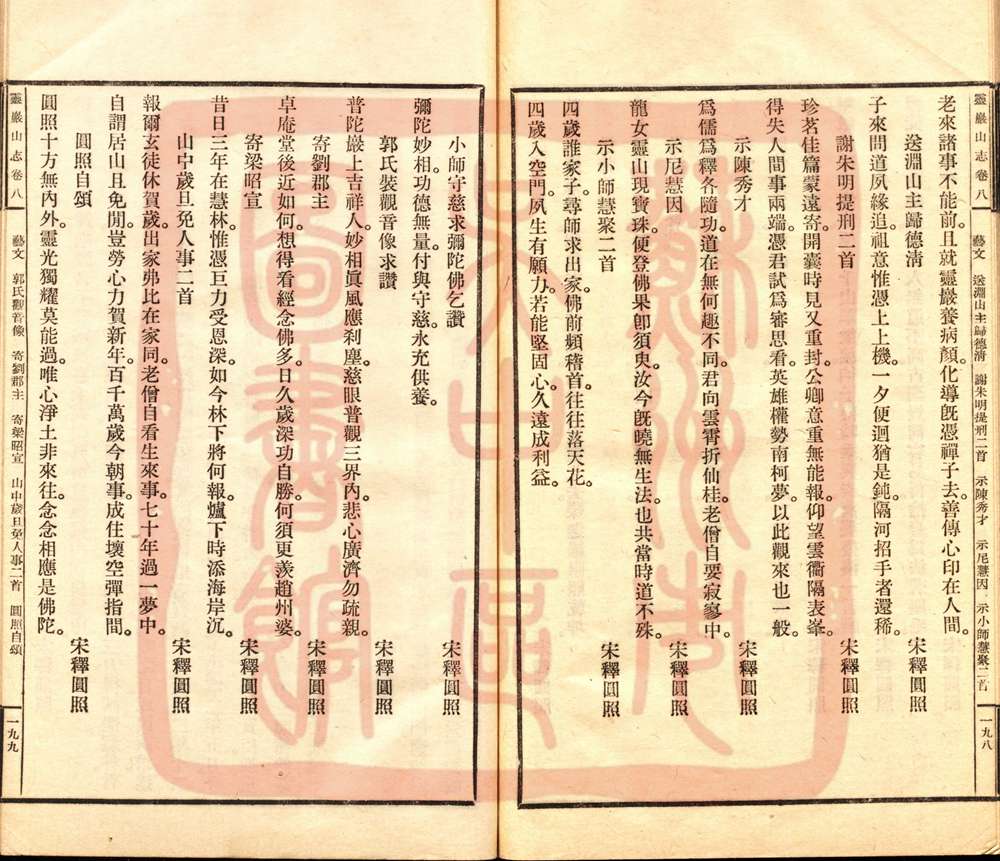 靈巖山志卷八 藝文 送淵山主歸德清 謝朱明提刑二首 示陳秀才 示尼慧因 示小師慧聚二首 一九八
老來諸事不能前。且就靈巖養病顏。化導旣憑禪子去。善傳心印在人間。
送淵山主歸德清 宋釋圓照
子來問道夙緣追。祖意惟憑上上機。一夕便迴猶是鈍。隔河招手者還稀。
謝朱明提刑二首 宋釋圓照
珍茗佳篇蒙遠寄。開囊時見又重封。公卿意重無能報。仰望雲衢隔表峯。
得失人間事兩端。憑君試爲審思看。英雄權勢南柯夢。以此觀來也一般。
示陳秀才 宋釋圓照
爲儒爲釋各隨功。道在無何趣不同。君向雲霄折仙桂。老僧自要寂寥中。
示尼慧因 宋釋圓照
龍女靈山現寶珠。便登佛果卽須臾。汝今旣曉無生法。也共當時道不殊。
示小師慧聚二首 宋釋圓照
四歲誰家子。尋師求出家。佛前頻稽首。往往落天花。
四歲入空門。夙生有願力。若能堅固心。久遠成利益。
小師守慈求彌陀佛乞讚 宋釋圓照
彌陀妙相。功德無量。付與守慈。永充供養。
郭氏裝觀音像求讚 宋釋圓照
普陀巖上吉祥人。妙相眞風應刹塵。慈眼普觀三界內。悲心廣濟勿疏親。
寄劉郡主 宋釋圓照
卓庵堂後近如何。想得看經念佛多。日久歲深功自勝。何須更羨趙州婆。
寄梁昭宣 宋釋圓照
昔日三年在慧林。惟憑巨力受恩深。如今林下將何報。爐下時添海岸沉。
山中歲旦免人事二首 宋釋圓照
報爾玄徒休賀歲。出家弗比在家同。老僧自看生來事。七十年過一夢中。
自謂居山且免閒。豈勞心力賀新年。百千萬歲今朝事。成住壞空彈指間。
圓照自頌 宋釋圓照
圓照十方無內外。靈光獨耀莫能過。唯心淨土非來往。念念相應是佛陀。
靈巖山志卷八 藝文 郭氏觀音像 寄劉郡主 寄梁昭宣 山中歲旦免人事二首 圓照自頌 一九九